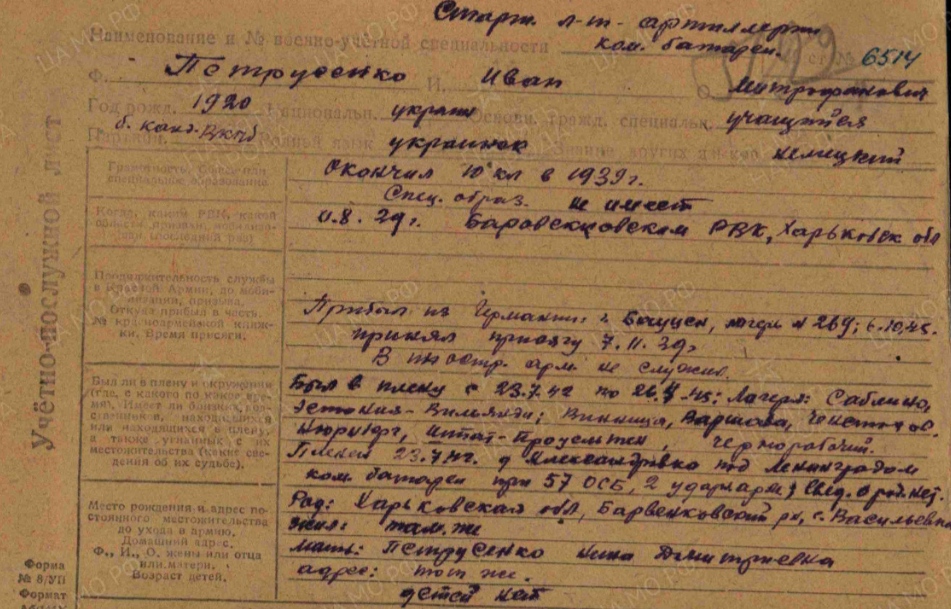 Старш. л-т артиллерии
Наименование и № военно-учетной специальности ком. батареи.
ст. № 6514
Ф. Петрусенко И. Иван О. Митрофанович
Год рожд. 1920 Национальн. украин Основн. гражд. специальн. учащийся
б. канд. ВКПб Родной язык украинск Знание других языков немецкий
Учётно-послужной лист
Грамотность, общее или специальное образование
Окончил 10 кл в 1939г.
Спец. образ. не имеет
Когда, каким РВК, какой области призван,
39г. Барвенковским РВК, Харьковск. обл
Продолжительность службы
в Красной Армии, до моби-
лизации, призыва.
Откуда прибыл в часть.
№ красноармейской книж-
ки. Время присяги.
Прибыл из Германии: г. Бауцен, лагерь № 269; 6.10.45.
принял присягу 7.11.39г
В иностр. арм. не служил.
Был ли в плену и окружении
(где, с какого по какое вре-
мя). Имеет ли близких родственников, находившихся
или находящихся в плену,
а также угнанных с их
местожительства (какие све-
дения об их судьбе).
Был в плену с 23.7.42 по 45; Лагеря: Саблино,
Эстония-Вильянди; Винница, Варшава, Ченстохов.
Нюрнберг, чернорабочий.
Пленен 23.7.42г. д Александровка под Ленинградом
ком. батареи при 57 ОСБ, 2 удар. арм; Свед. о род. нет.
Место рождения и адрес по-
стоянного местожительства
до ухода в армию.
Домашний адрес.
Ф., И., О. жены или отца
или матери.
Возраст детей.
Род: Харьковская обл, Барвенковский рн, с. Васильевка
жил: там же
Мать: Петрусенко Дмитриевна
адрес: тот же.
детей нет
Форма
№ 8/УП
Формат
ЦАМО РФ